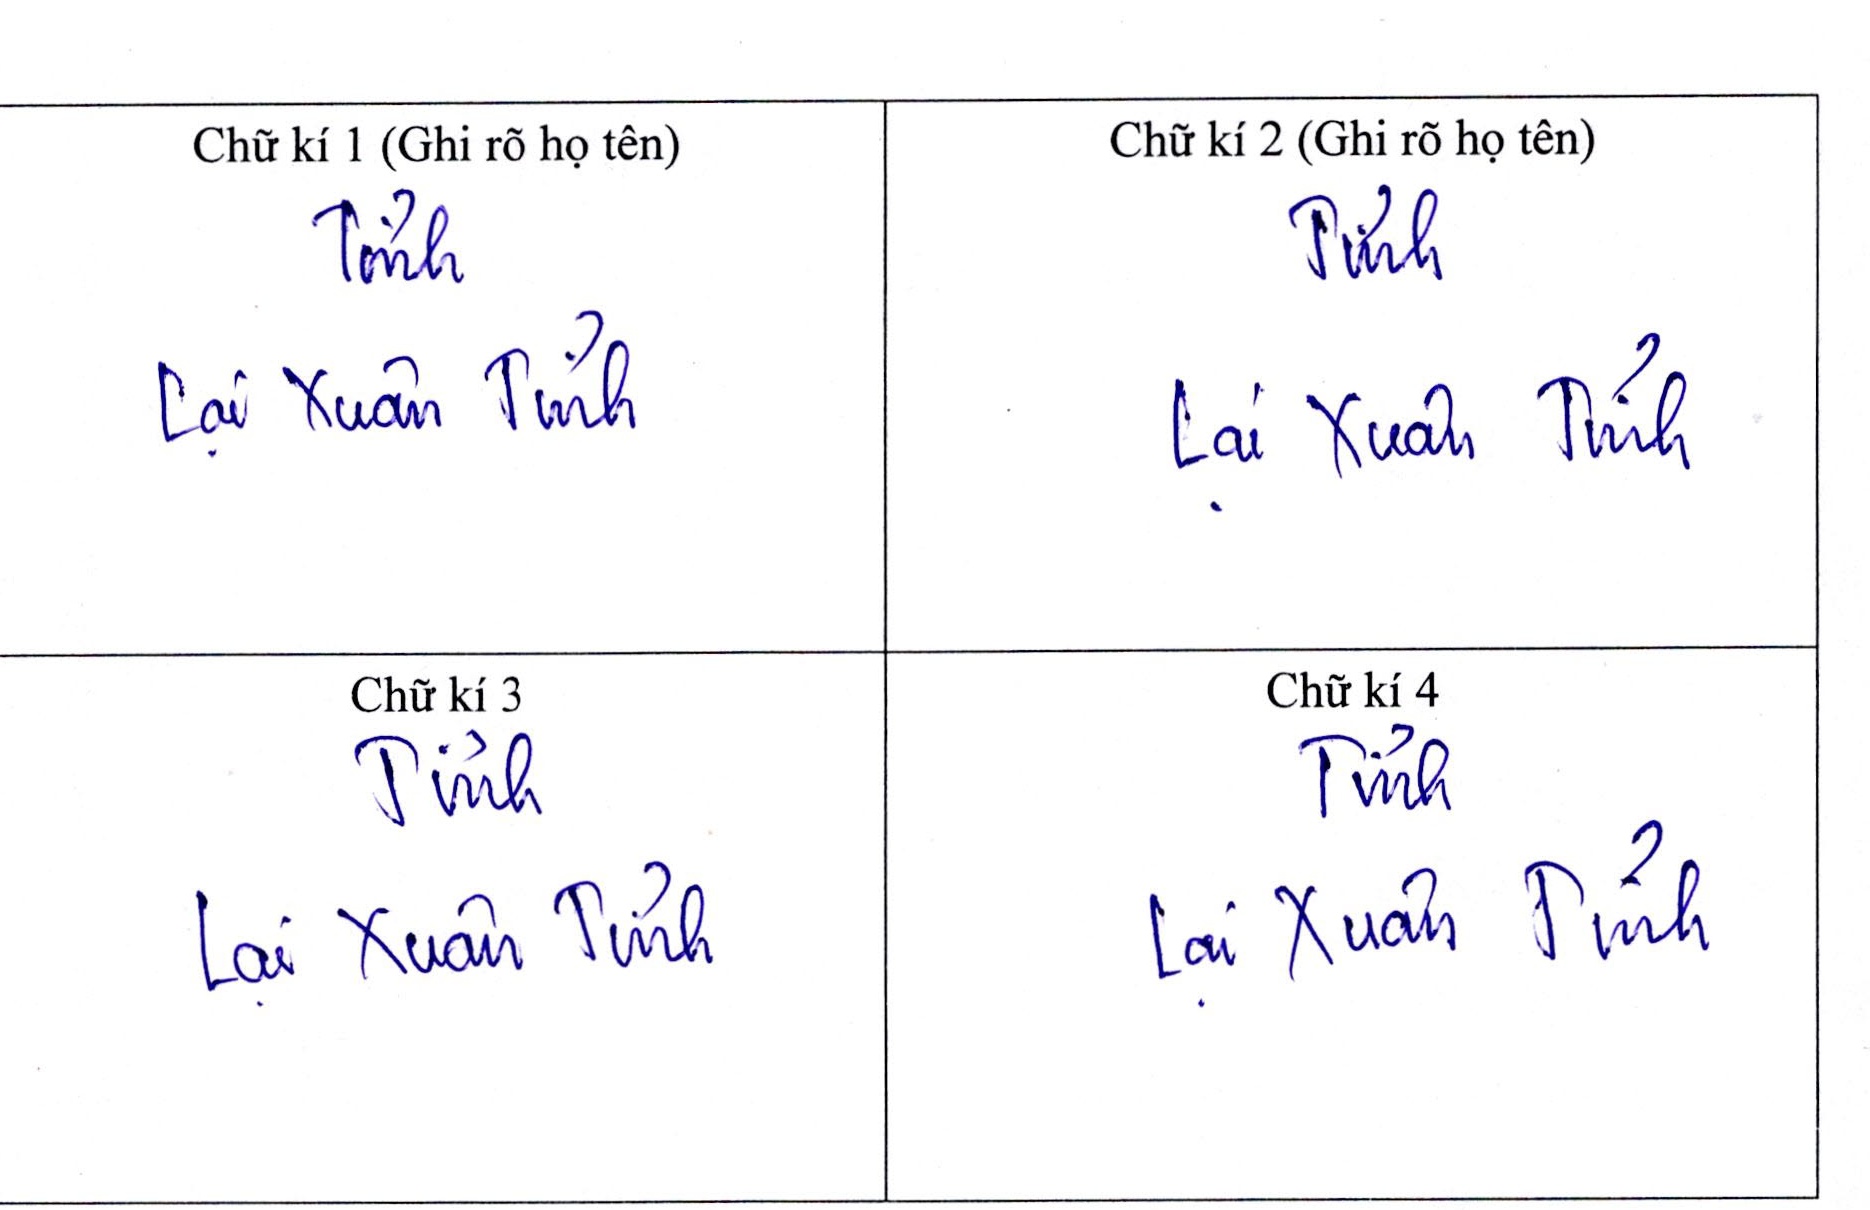 Chữ kí 1 (Ghi rõ họ tên)
Tỉnh
Lại Xuân Tỉnh
Chữ kí 2 (Ghi rõ họ tên)
Tỉnh
Lại Xuân Tỉnh
Chữ kí 3
Tỉnh
Lại Xuân Tỉnh
Chữ kí 4
Tỉnh
Lại Xuân Tỉnh